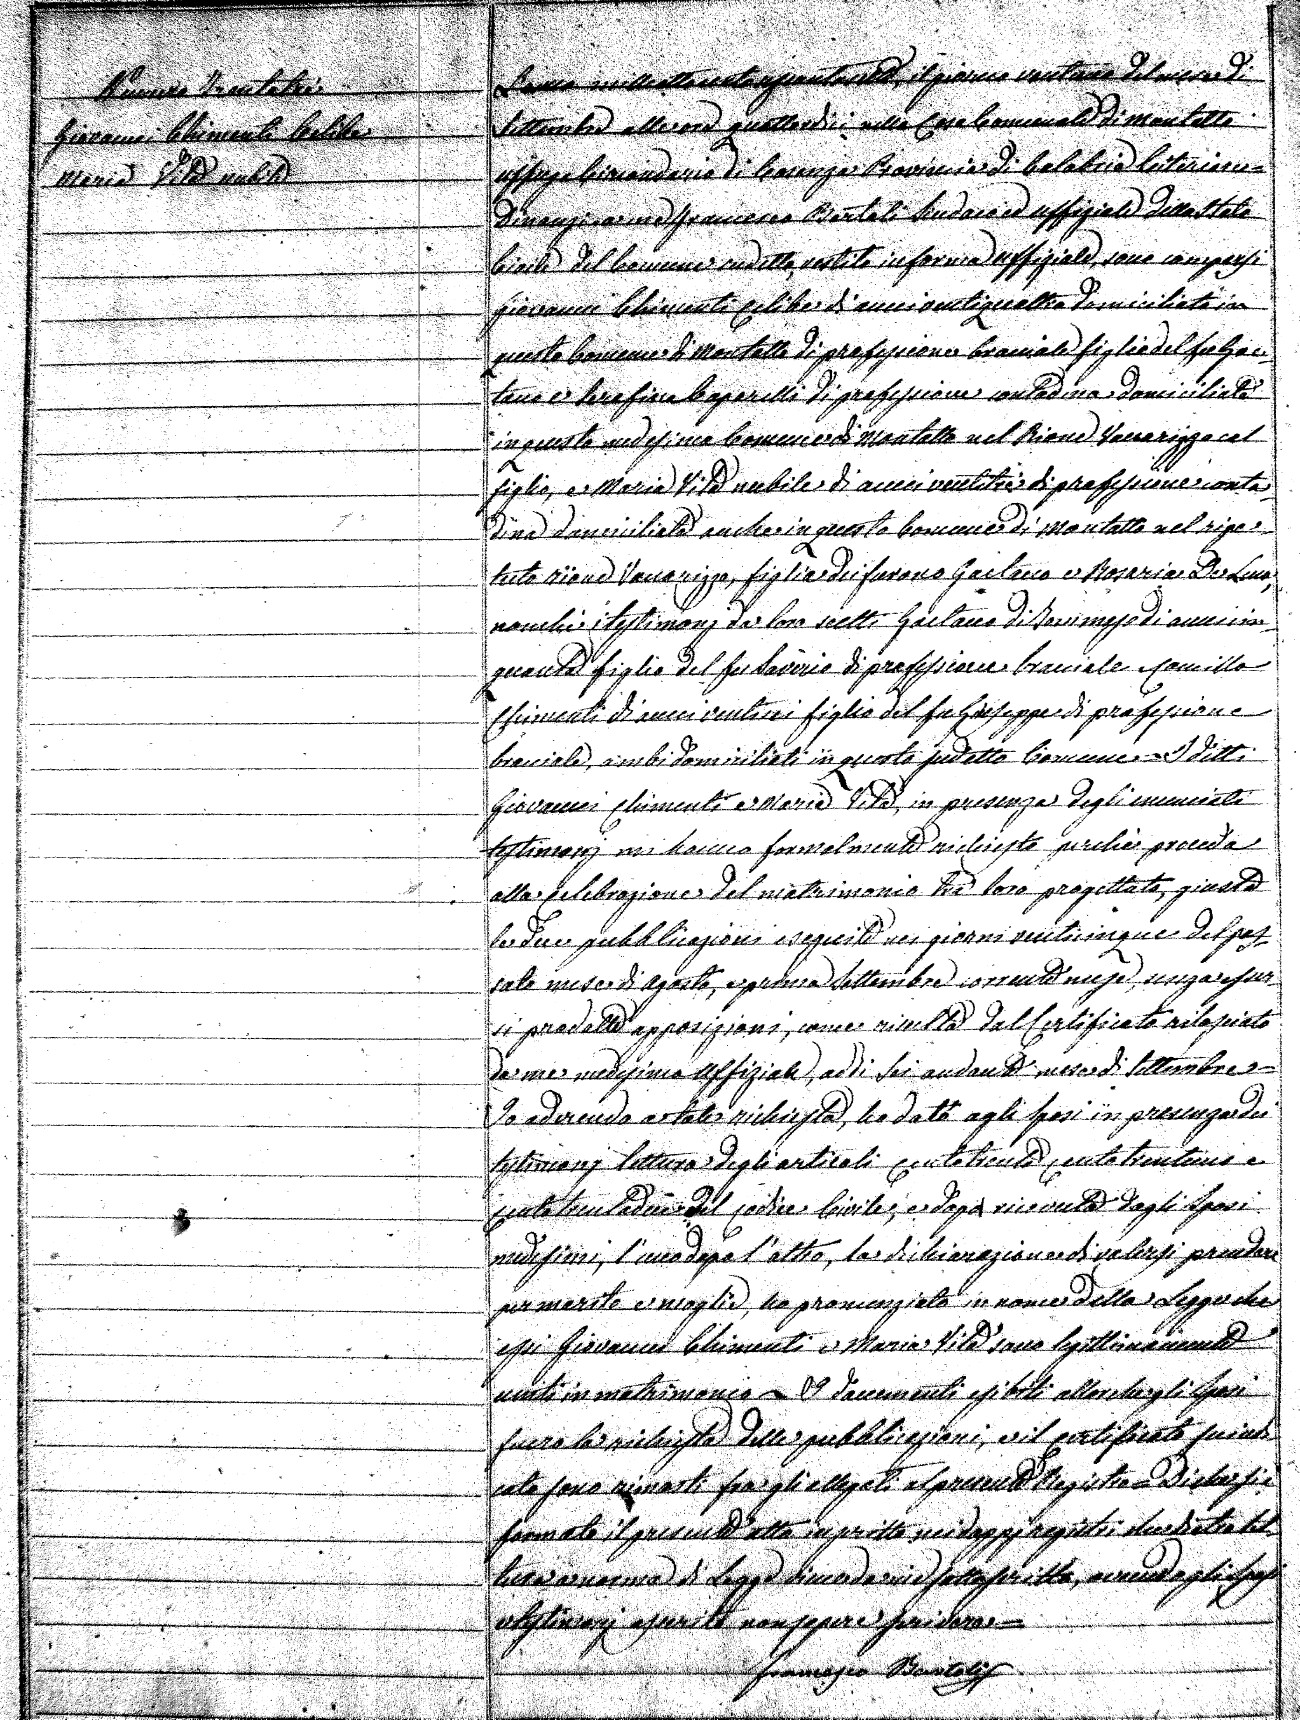 Numero Trentatre
Giovanni Chimenti Celibe
Maria Vita nubile
L'anno milleottocento, il giorno ventuno del mese di
Settembre alle ore quattordici nella Casa Comunale di Montalto
uffugo Circondario di Cosenza Provincia di Calabria Citeriore =
Dinanzi a me Francesco Bartoli Sindaco ed uffiziale dello Stato
Civile del Comune sudetto, vestito in forma uffiziale, sono comparsi
Giovanni Chimenti celibe di anni ventiquattro domiciliato in
questo Comune di Montalto di professione bracciale figlio del fu Gae,
tano e Serafina Caparelli di professione contadina domiciliata
in questo medesimo Comune di Montalto nel Rione Vaccarizzo col
figlio, e Maria Vita nubile di anni ventitre di professione conta,
dina domiciliata anche in questo Comune di Montalto nel ripe,
tuto rione Vaccarizzo, figlia dei furono Gaetano e Rosaria De Luca,
nonchè i testimonj da loro scelti Gaetano di anni cin,
quanta figlio del fu Saverio di professione bracciale e Camillo
Chimenti di anni figlio del fu Giuseppe di professione
bracciale, ambi domiciliati in questo sudetto Comune = I detti
Giovanni Chimenti e Maria Vita, in presenza degli enunciati
testimonj mi hanno formalmente richiesto perchè proceda
alla celebrazione del matrimonio tra loro progettato, giusta
le due pubblicazioni eseguite nei giorni venticinque del pas,
sato mese di Agosto, e primo Settembre corrente mese, senza esser,
ci prodotte opposizioni, come risulta dal Certificato rilasciato
da me medesimo uffiziale, addi sei andante mese di Settembre =
Io aderendo a tale richiesta, ho dato agli sposi in presenza dei
testimonj lettura degli articoli centotrenta centotrentuno e
centotrentadue del codice Civile, e dopo ricevuta dagli sposi
medesimi, l'uno dopo l'altro, la dichiarazione di volersi prendere
per marito e moglie, ho pronunziato in nome della Legge che
essi Giovanni Chimenti e Maria Vita sono legittimamente
uniti in matrimonio = I documenti esibiti allorchè gli sposi
fecero la richiesta delle pubblicazioni, e il certificato suindi,
cato sono rimasti fra gli allegati al presente Registro = Di che si è
formato il presente atto inscritto nei doppj registri che dietro let,
tura a norma di Legge viene da me sottoscritto, avendo gli sposi
e testimonj asserito non sapere scrivere =
Francesco Bartoli